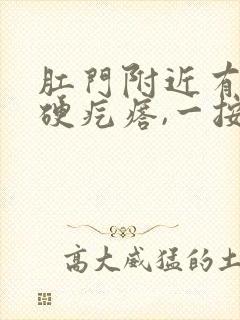 肛門附近有
硬疙瘩,一按
高大威猛的土